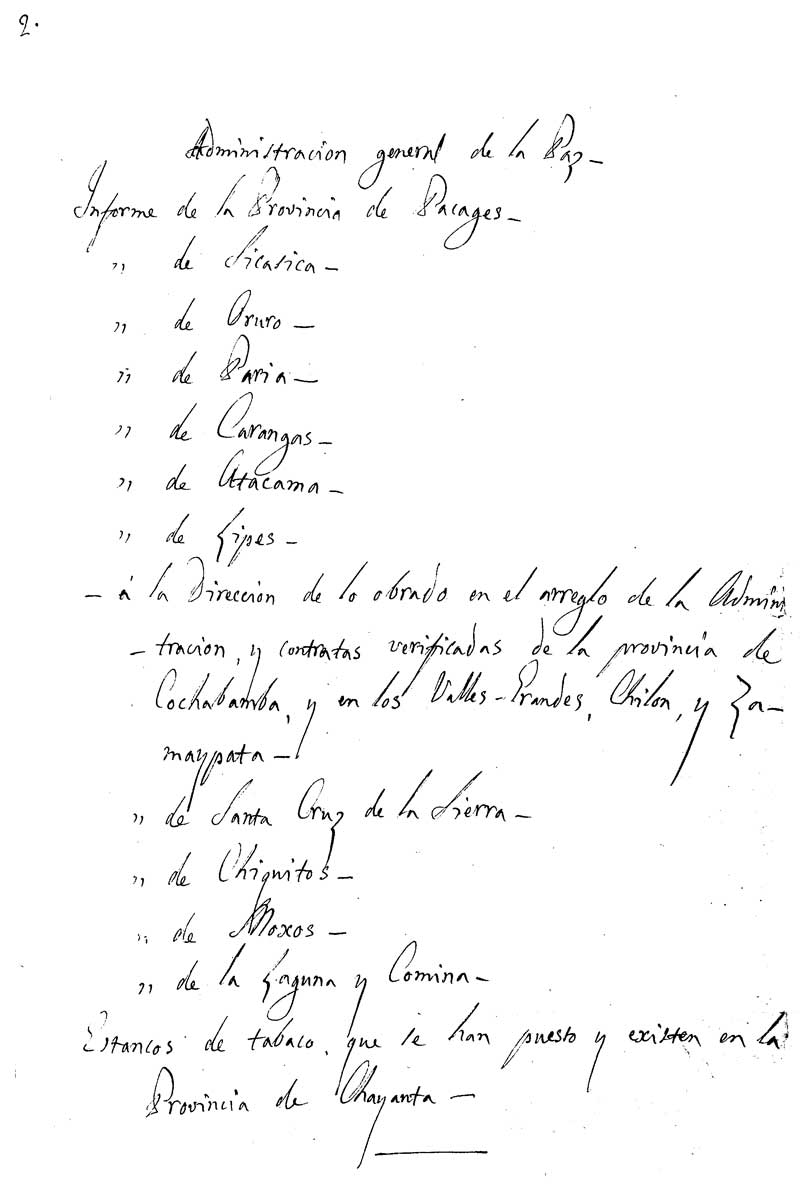 2.
Administracion general de la Paz—
Informe de la Provincia de Pacages—
" de Sicasica—
" de Oruro—
" de Paria—
" de Carangas—
" de Atacama—
" de Lipes—
— á la Direccion de lo obrado en el arreglo de la Adminis
— tracion, y contratas verificadas de la provincia de
Cochabamba, y en los Valles-Grandes, Chilon, y Za—
maypata—
" de Santa Cruz de la Sierra—
" de Chiquitos—
" de Moxos—
" de la Laguna y Comina—
Estancos de tabaco, que se han puesto y existen en la
Provincia de Chayanta—